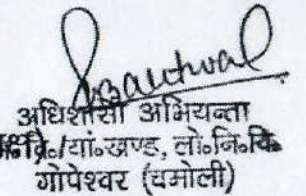 अधिशासी अभियन्ता
वि०/यां०खण्ड, लो०नि०वि०
गोपेश्वर (चमोली)